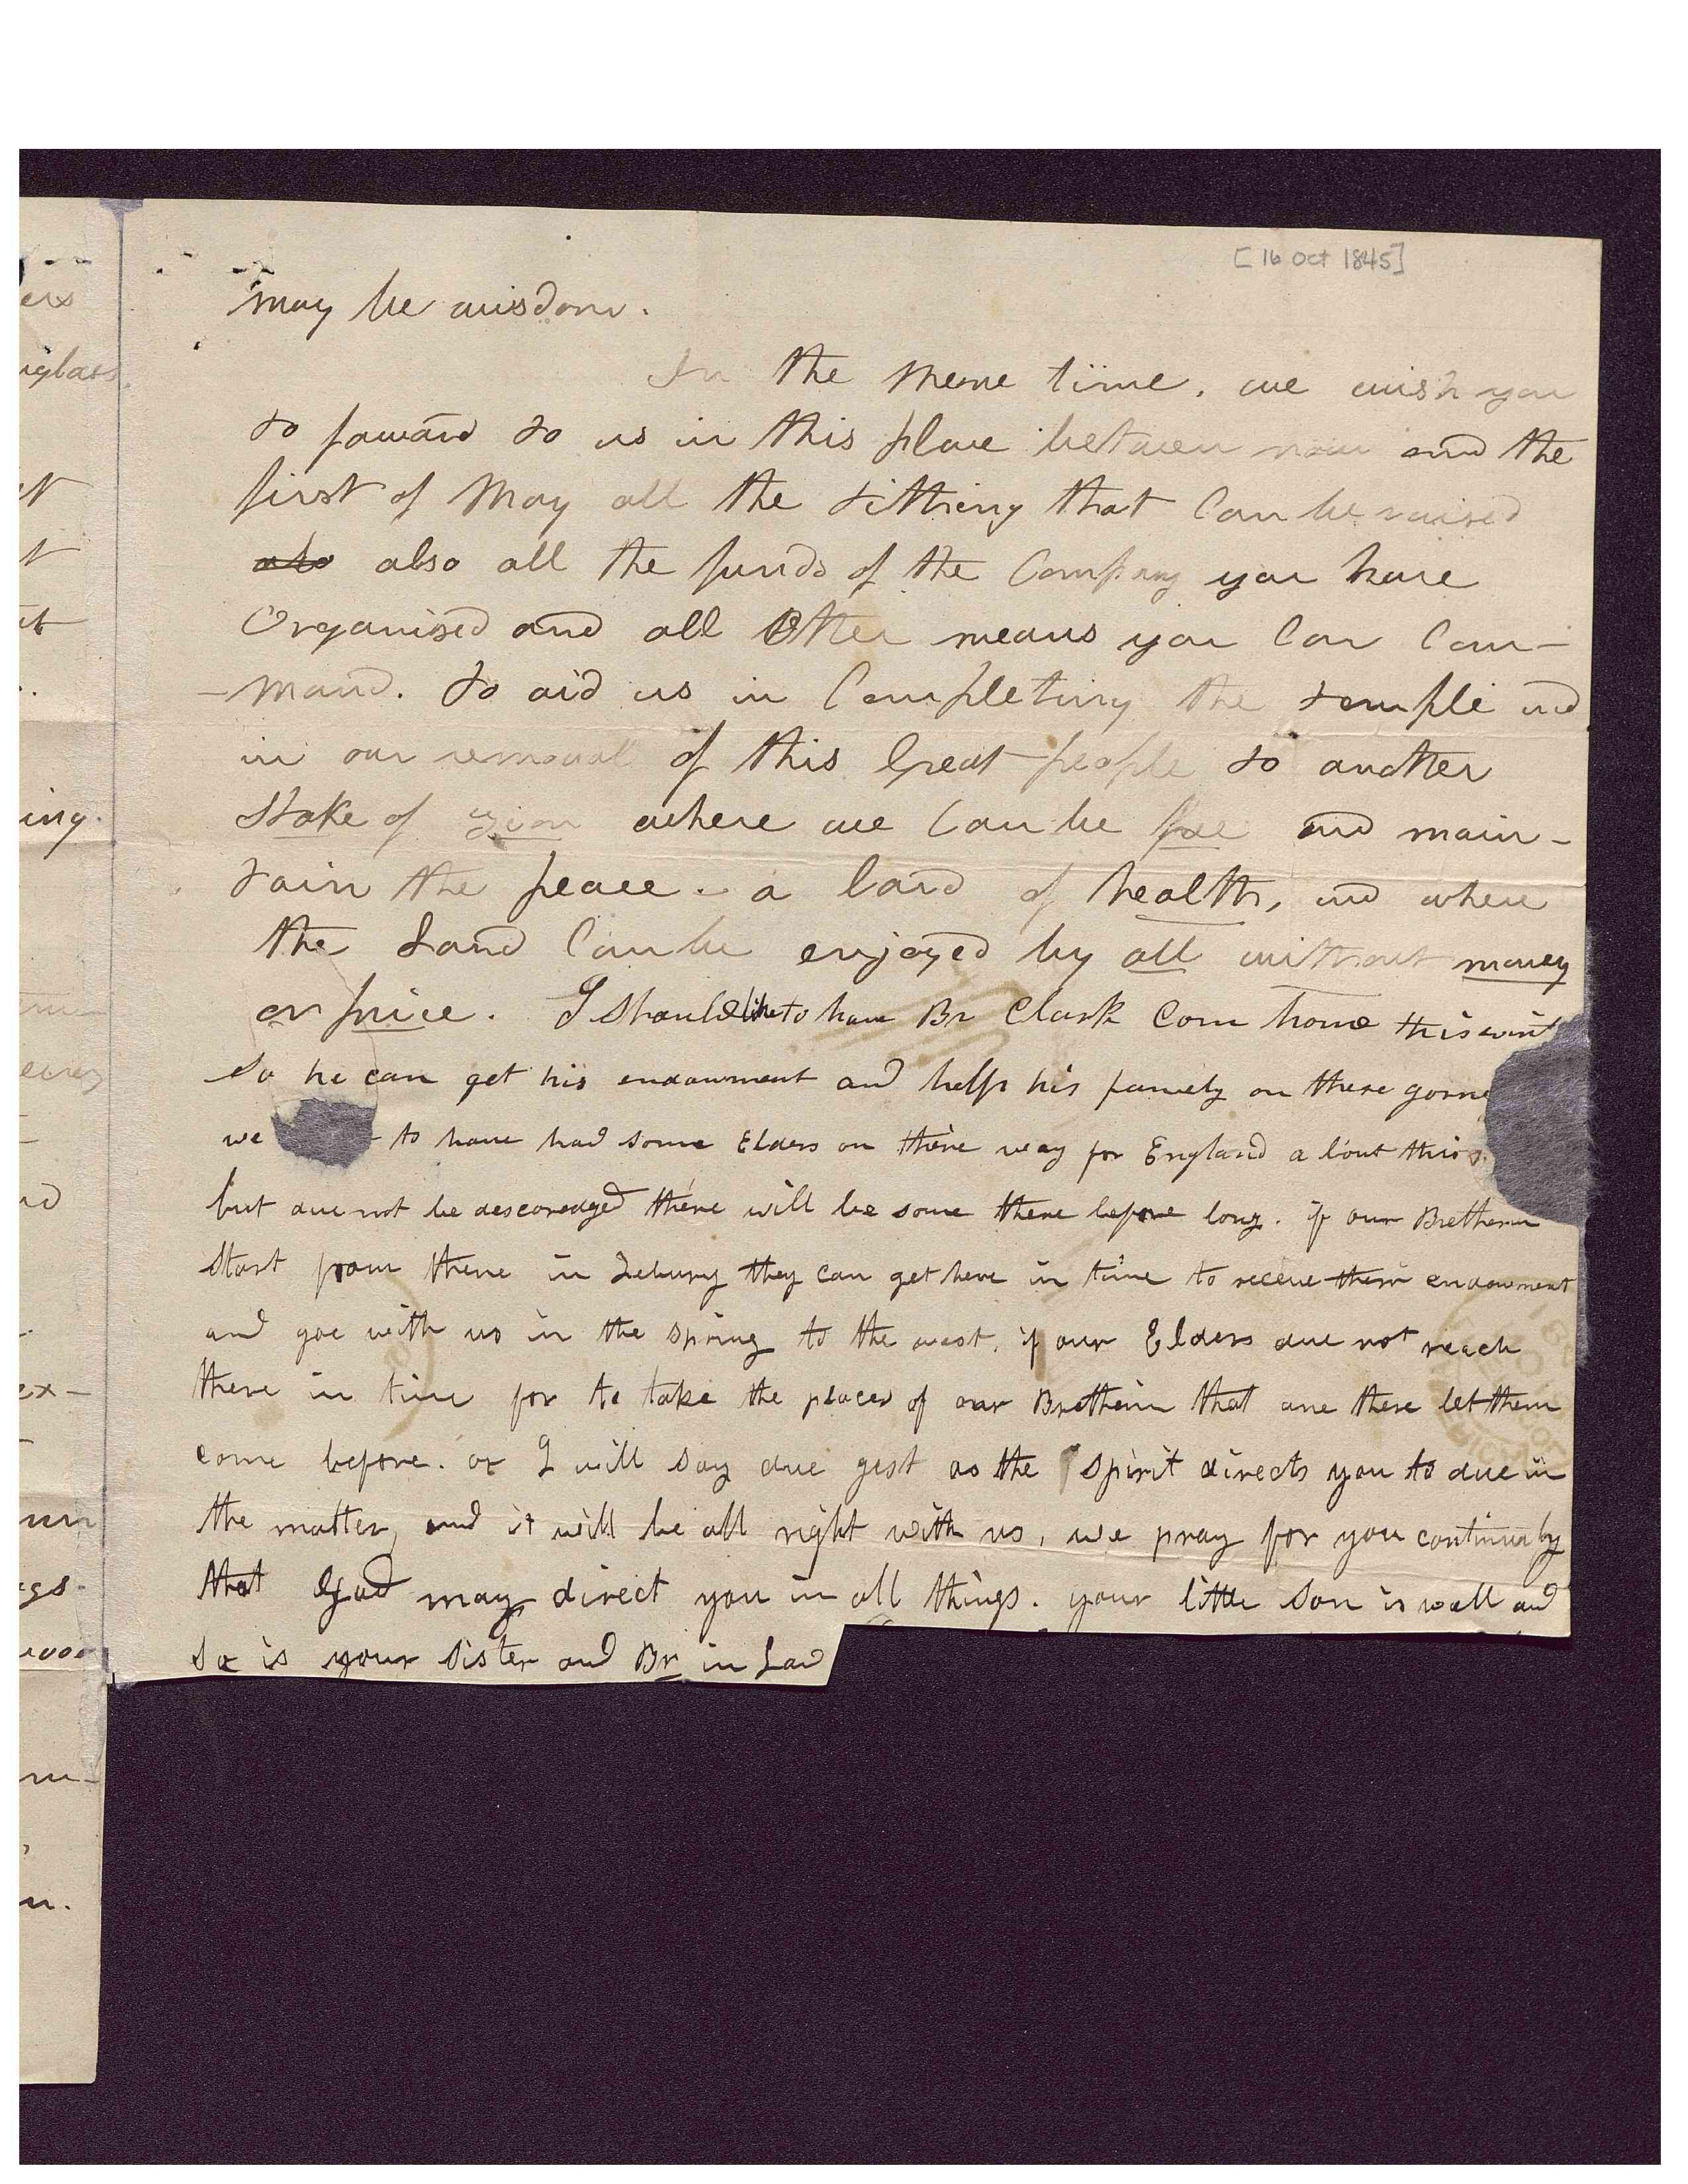 [16 Oct 1845]
may be wisdom.
In the mene time, we wish you
to foward to us in this place between now and the
first of May all the tithing that Can be raised
also also all the funds of the Company you have
Organised and all Other means you Can Com-
-mand. to aid us in Completing the temple and
in our removal of this Great people to another
Stake of Zion where we Can be free and main-
tain the peace. a land of health, and where
the Land Can be enjoyed by all without money
or price. I should like to have Br Clark Com home this wint
so he can get his endowment and help his famely on there gorne
we to have had some Elders on there way for England a bout this
but due not be descoredged there will be some there before long. if our Bretherin
start from there in Jebury they can get here in time to receve their endowment
and goe with us in the spring to the west. if our Elders due not reach
there in time for to take the places of our Brotherin that are there let them
come before. or I will say due gest as the spirit directs you to due in
the matter, and it will be all right with us, we pray for you continualy
that God may direct you in all things. your little son is well and
so is your sister and Br in Law
eis
iglass.
st
t
at
ing.
me
eives
nd
ex-
un
igs.
wood
m-
n.